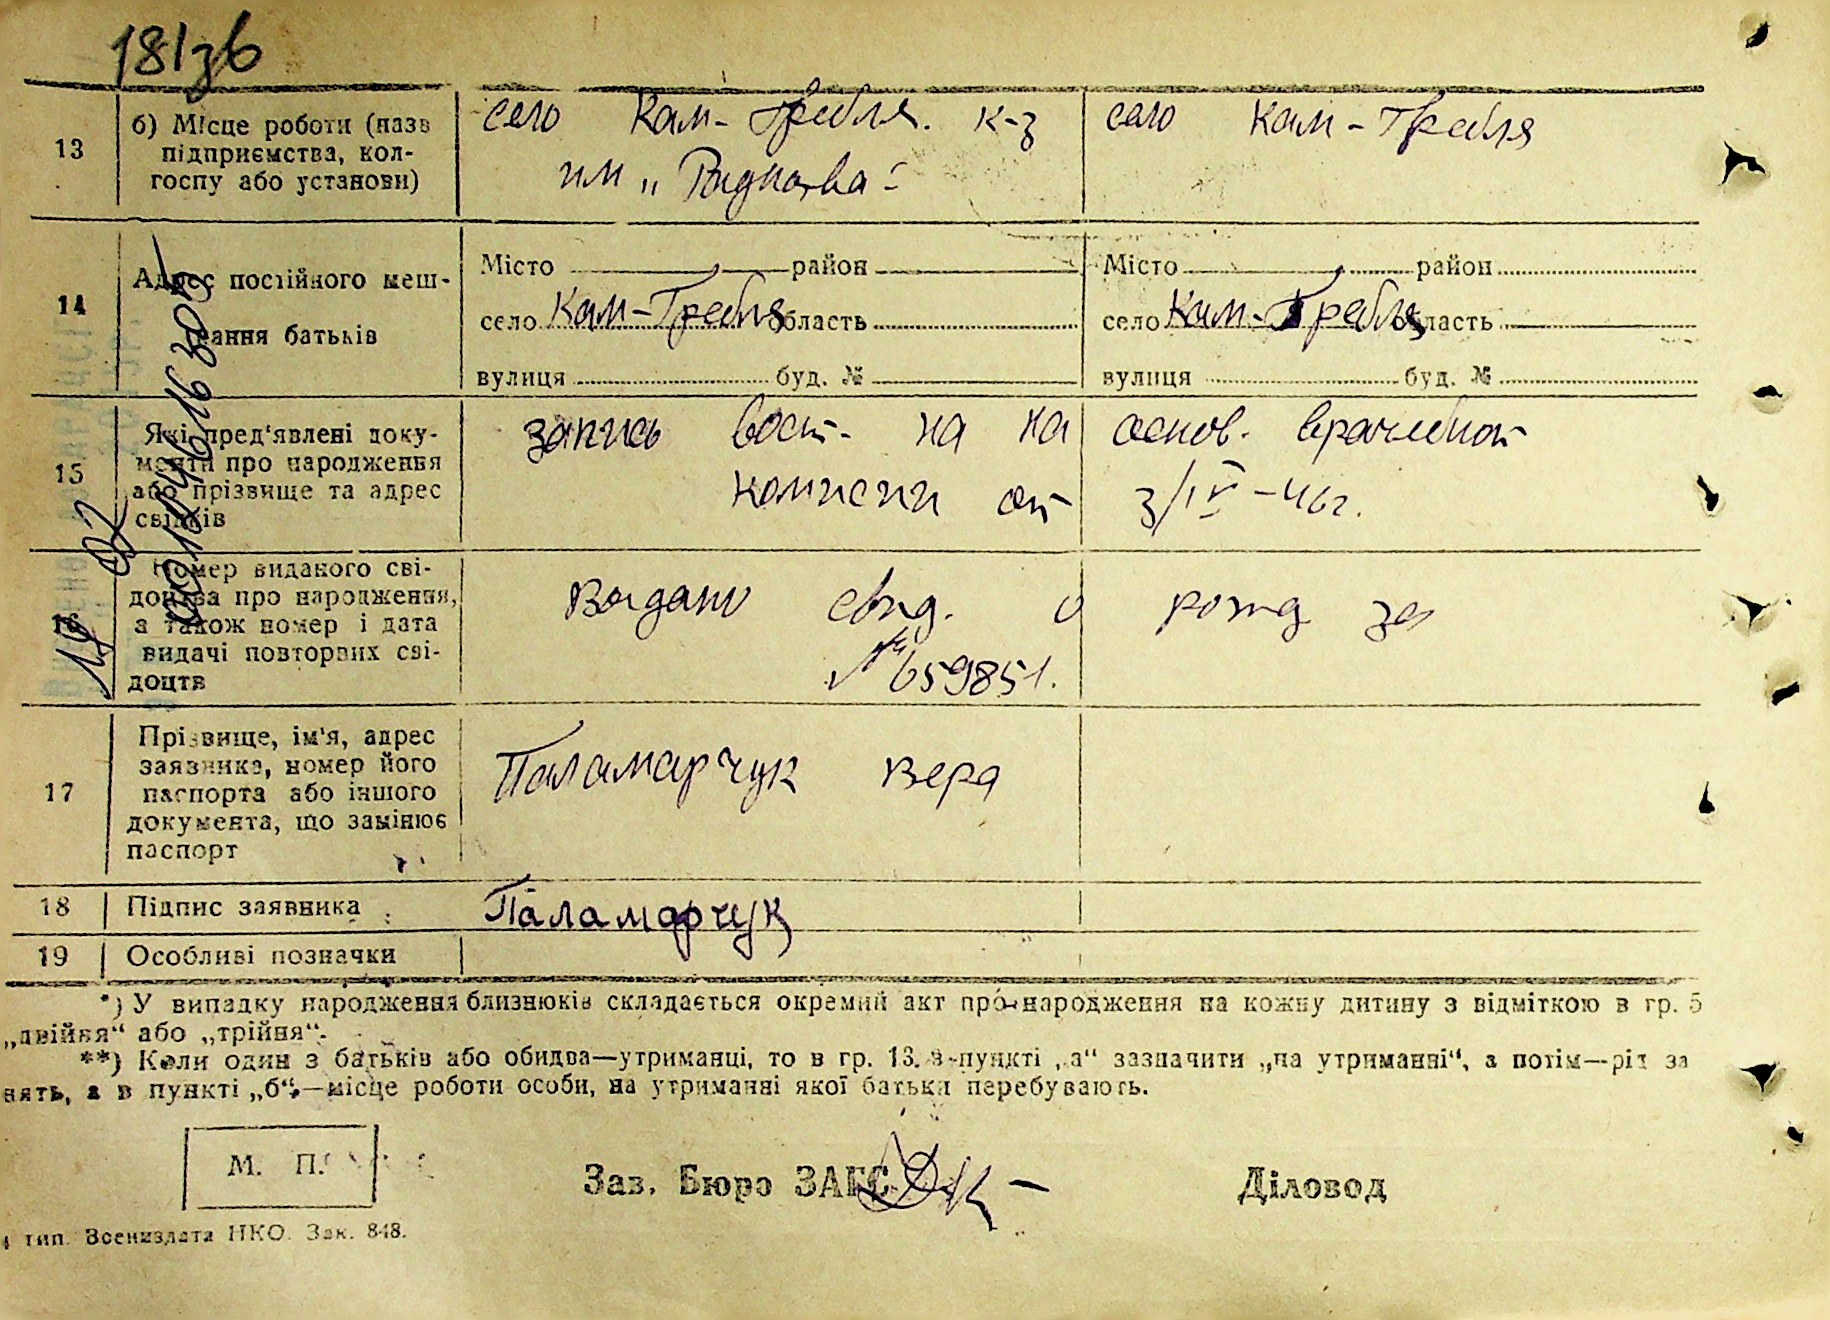 181зв
13
б) Місце роботи (назв
підприємства, кол-
госпу або установи)
село Кам-Гребля. к-з
им „
село Кам-Гребля
14
Адрес постійного меш-
кання батьків
Місто район
село Кам-Гребля область
вулиця буд. №
Місто район
село Кам-Гребля область
вулиця буд. №
15
Які пред'явлені доку-
менти про народження
або прізвище та адрес
свідків
запись вост. на на основ. врачебной
комисии от 3/IV-46г.
16
Номер виданого сві-
доцтва про народження,
а також номер і дата
видачі повторних сві-
доцтв
Выдано свид. о рожд за
№ 659851.
17
Прізвище, ім'я, адрес
заявника, номер його
паспорта або іншого
документа, що замінює
паспорт
Паламарчук Вера
18
Підпис заявника
Паламарчук
19
Особливі позначки
*) У випадку народження близнюків складається окремий акт про народження на кожну дитину з відміткою в гр. 5
„двійня“ або „трійня“.
**) Коли один з батьків або обидва—утриманці, то в гр. 13. в пункті „а“ зазначити „на утриманні“, а потім—рід за
нять, а в пункті „б“—місце роботи особи, на утриманні якої батьки перебувають.
М. П.
Зав. Бюро ЗАГС
Діловод
тип. Воениздата НКО. Зак. 848.